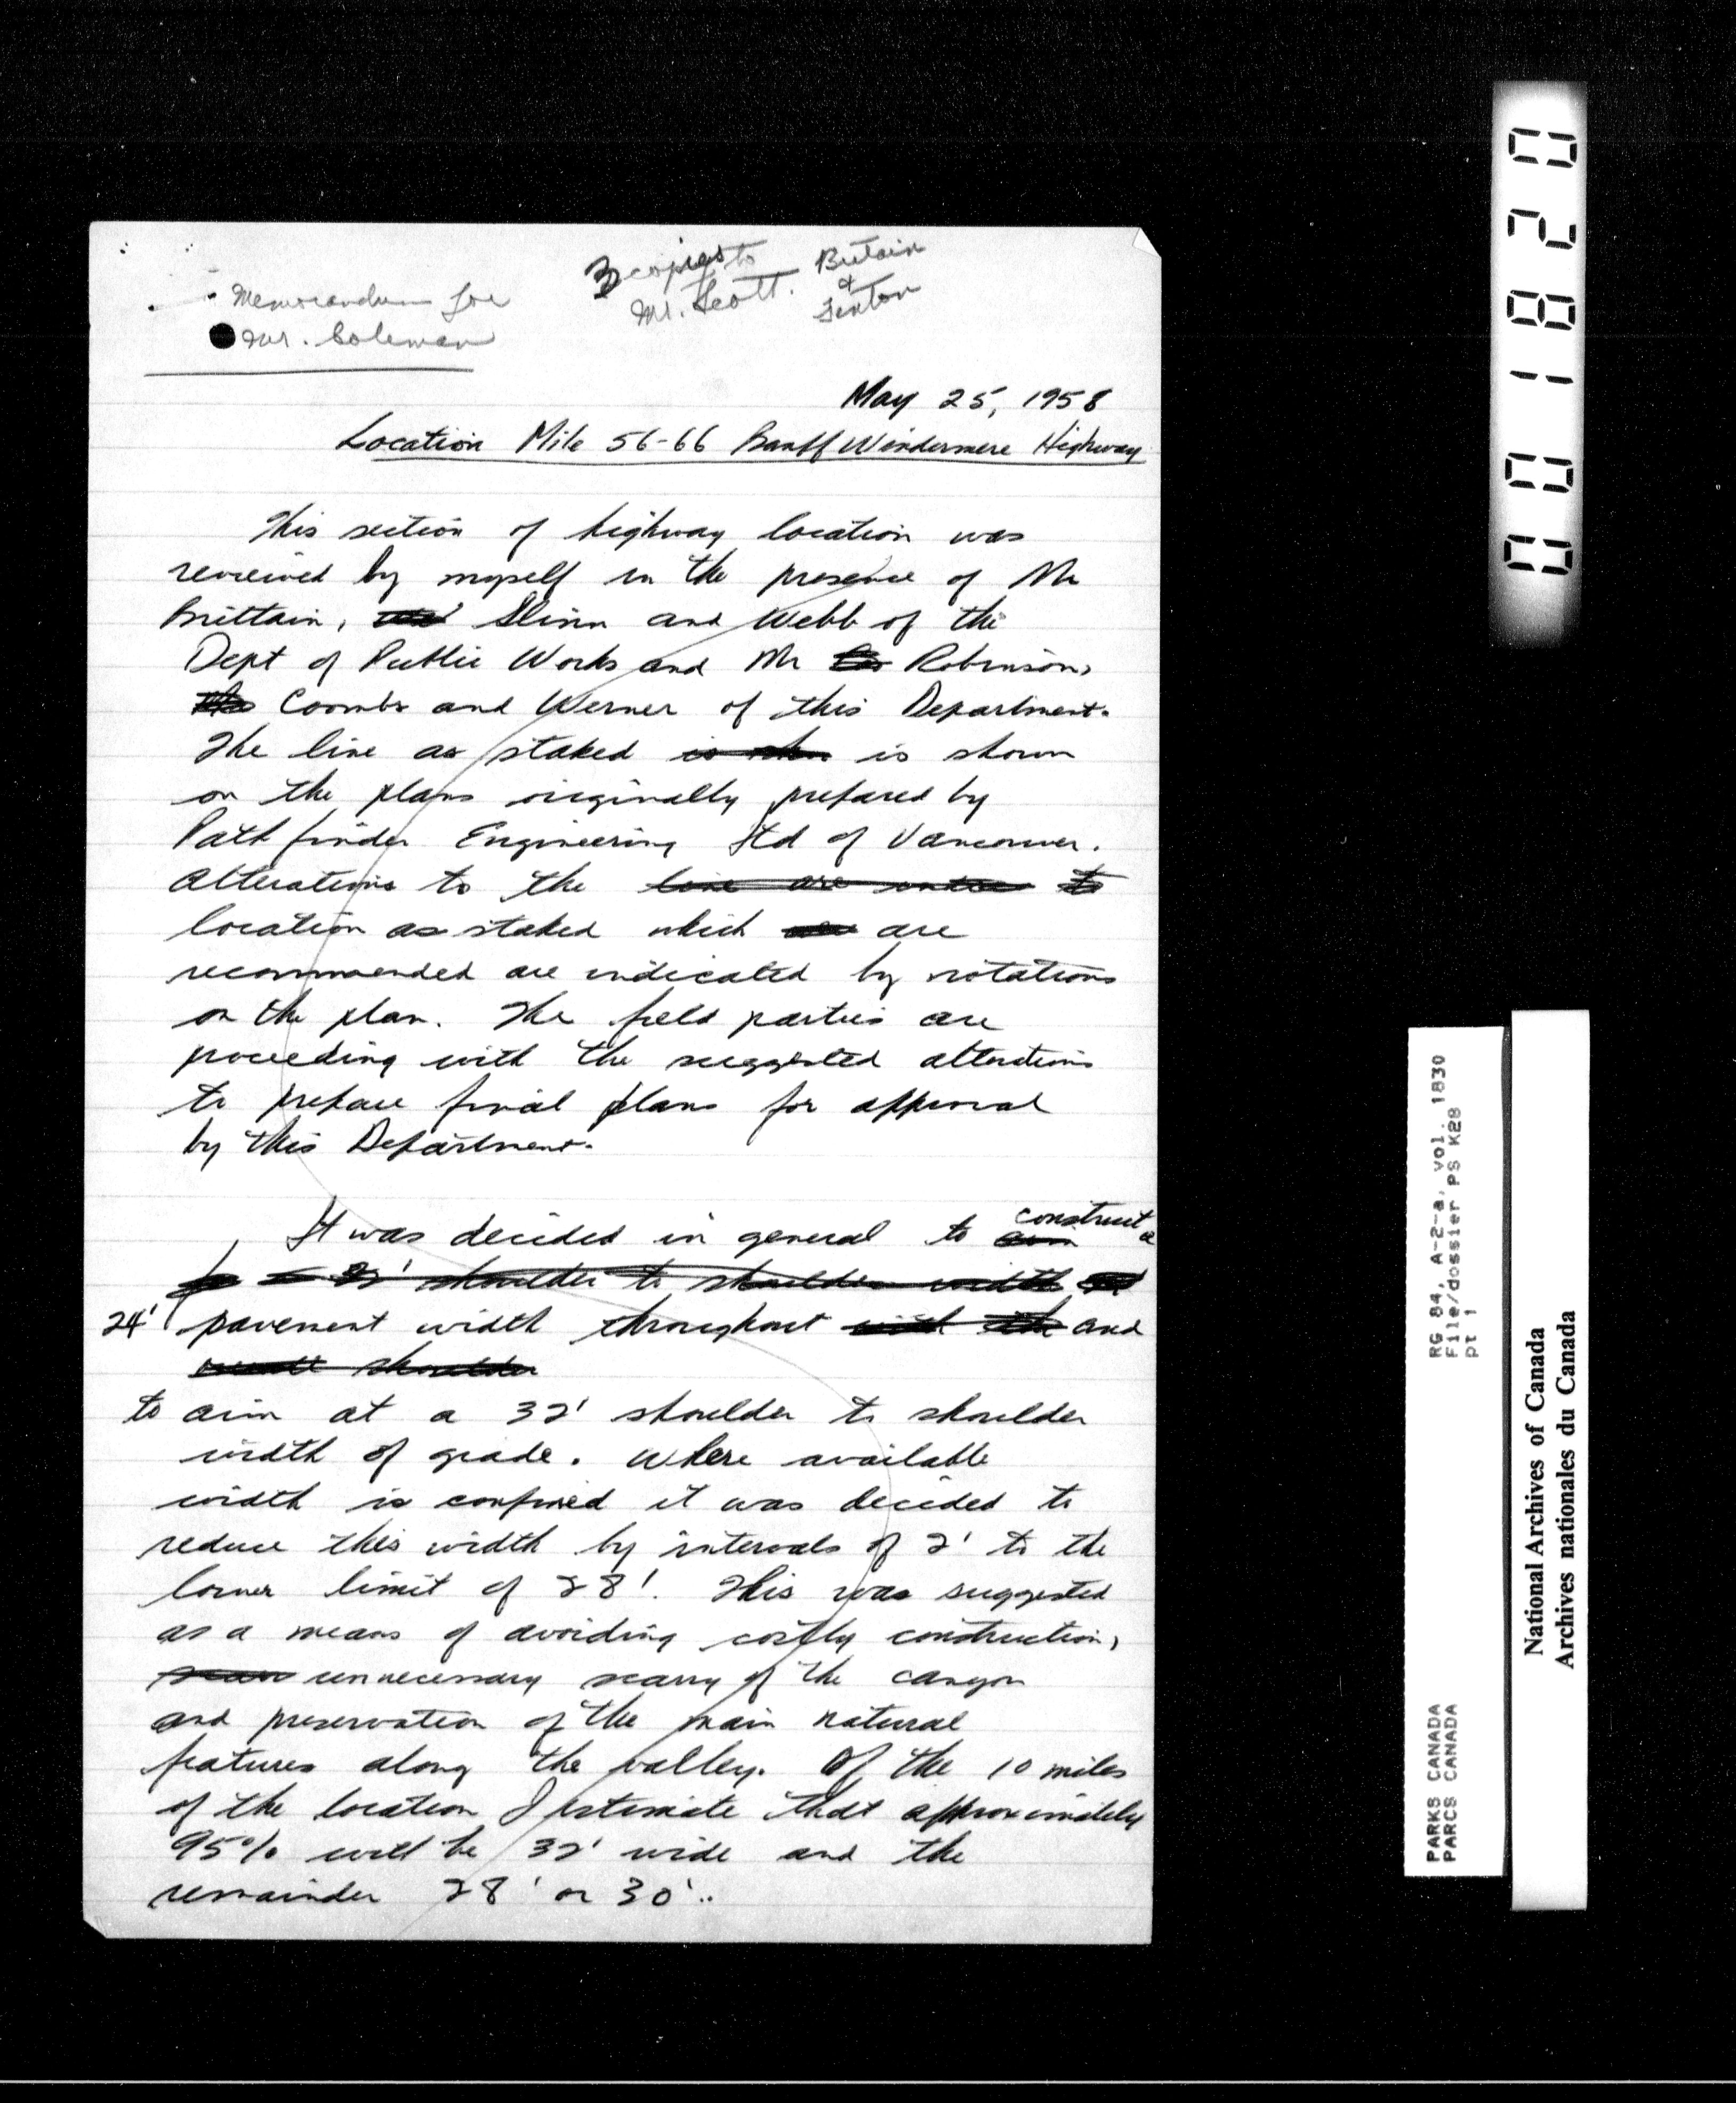 Memorandum for
Mr. Coleman
3 copies to
Mr. Scott.
Britain
&
Fenton
May 25, 1958
Location Mile 56-66 Banff Windermere Highway
This section of highway location was
reveiwed by myself in the presence of Mr
Brittain, Slinn and Webb of the
Dept of Public Works and Mr Robinson,
Coombs and Werner of this Department.
The line as staked is shown
on the plans originally prepared by
Path finder Engineering Ltd of Vancouver.
Alterations to the line are to
location as staked which are
recommended are indicated by notations
on the plan. The field parties are
proceeding with the suggested alterations
to prepare final plans for approval
by this Department.
It was decided in general to construct a
32' shoulder to shoulder width
24' pavement width throughout with the and
shoulder
to aim at a 32' shoulder to shoulder
width of grade. Where available
width is confined it was decided to
reduce this width by intervals of 2' to the
lower limit of 28'. This was suggested
as a means of avoiding costly construction,
unnecessary scarry of the canyon
and preservation of the main natural
features along the valley. Of the 10 miles
of the location I estimate that approximately
95% will be 32' wide and the
remainder 28' or 30'..
001820
RG 84, A-2-a, vol. 1830
File/dossier PS K28
pt 1
PARKS CANADA
PARCS CANADA
National Archives of Canada
Archives nationales du Canada